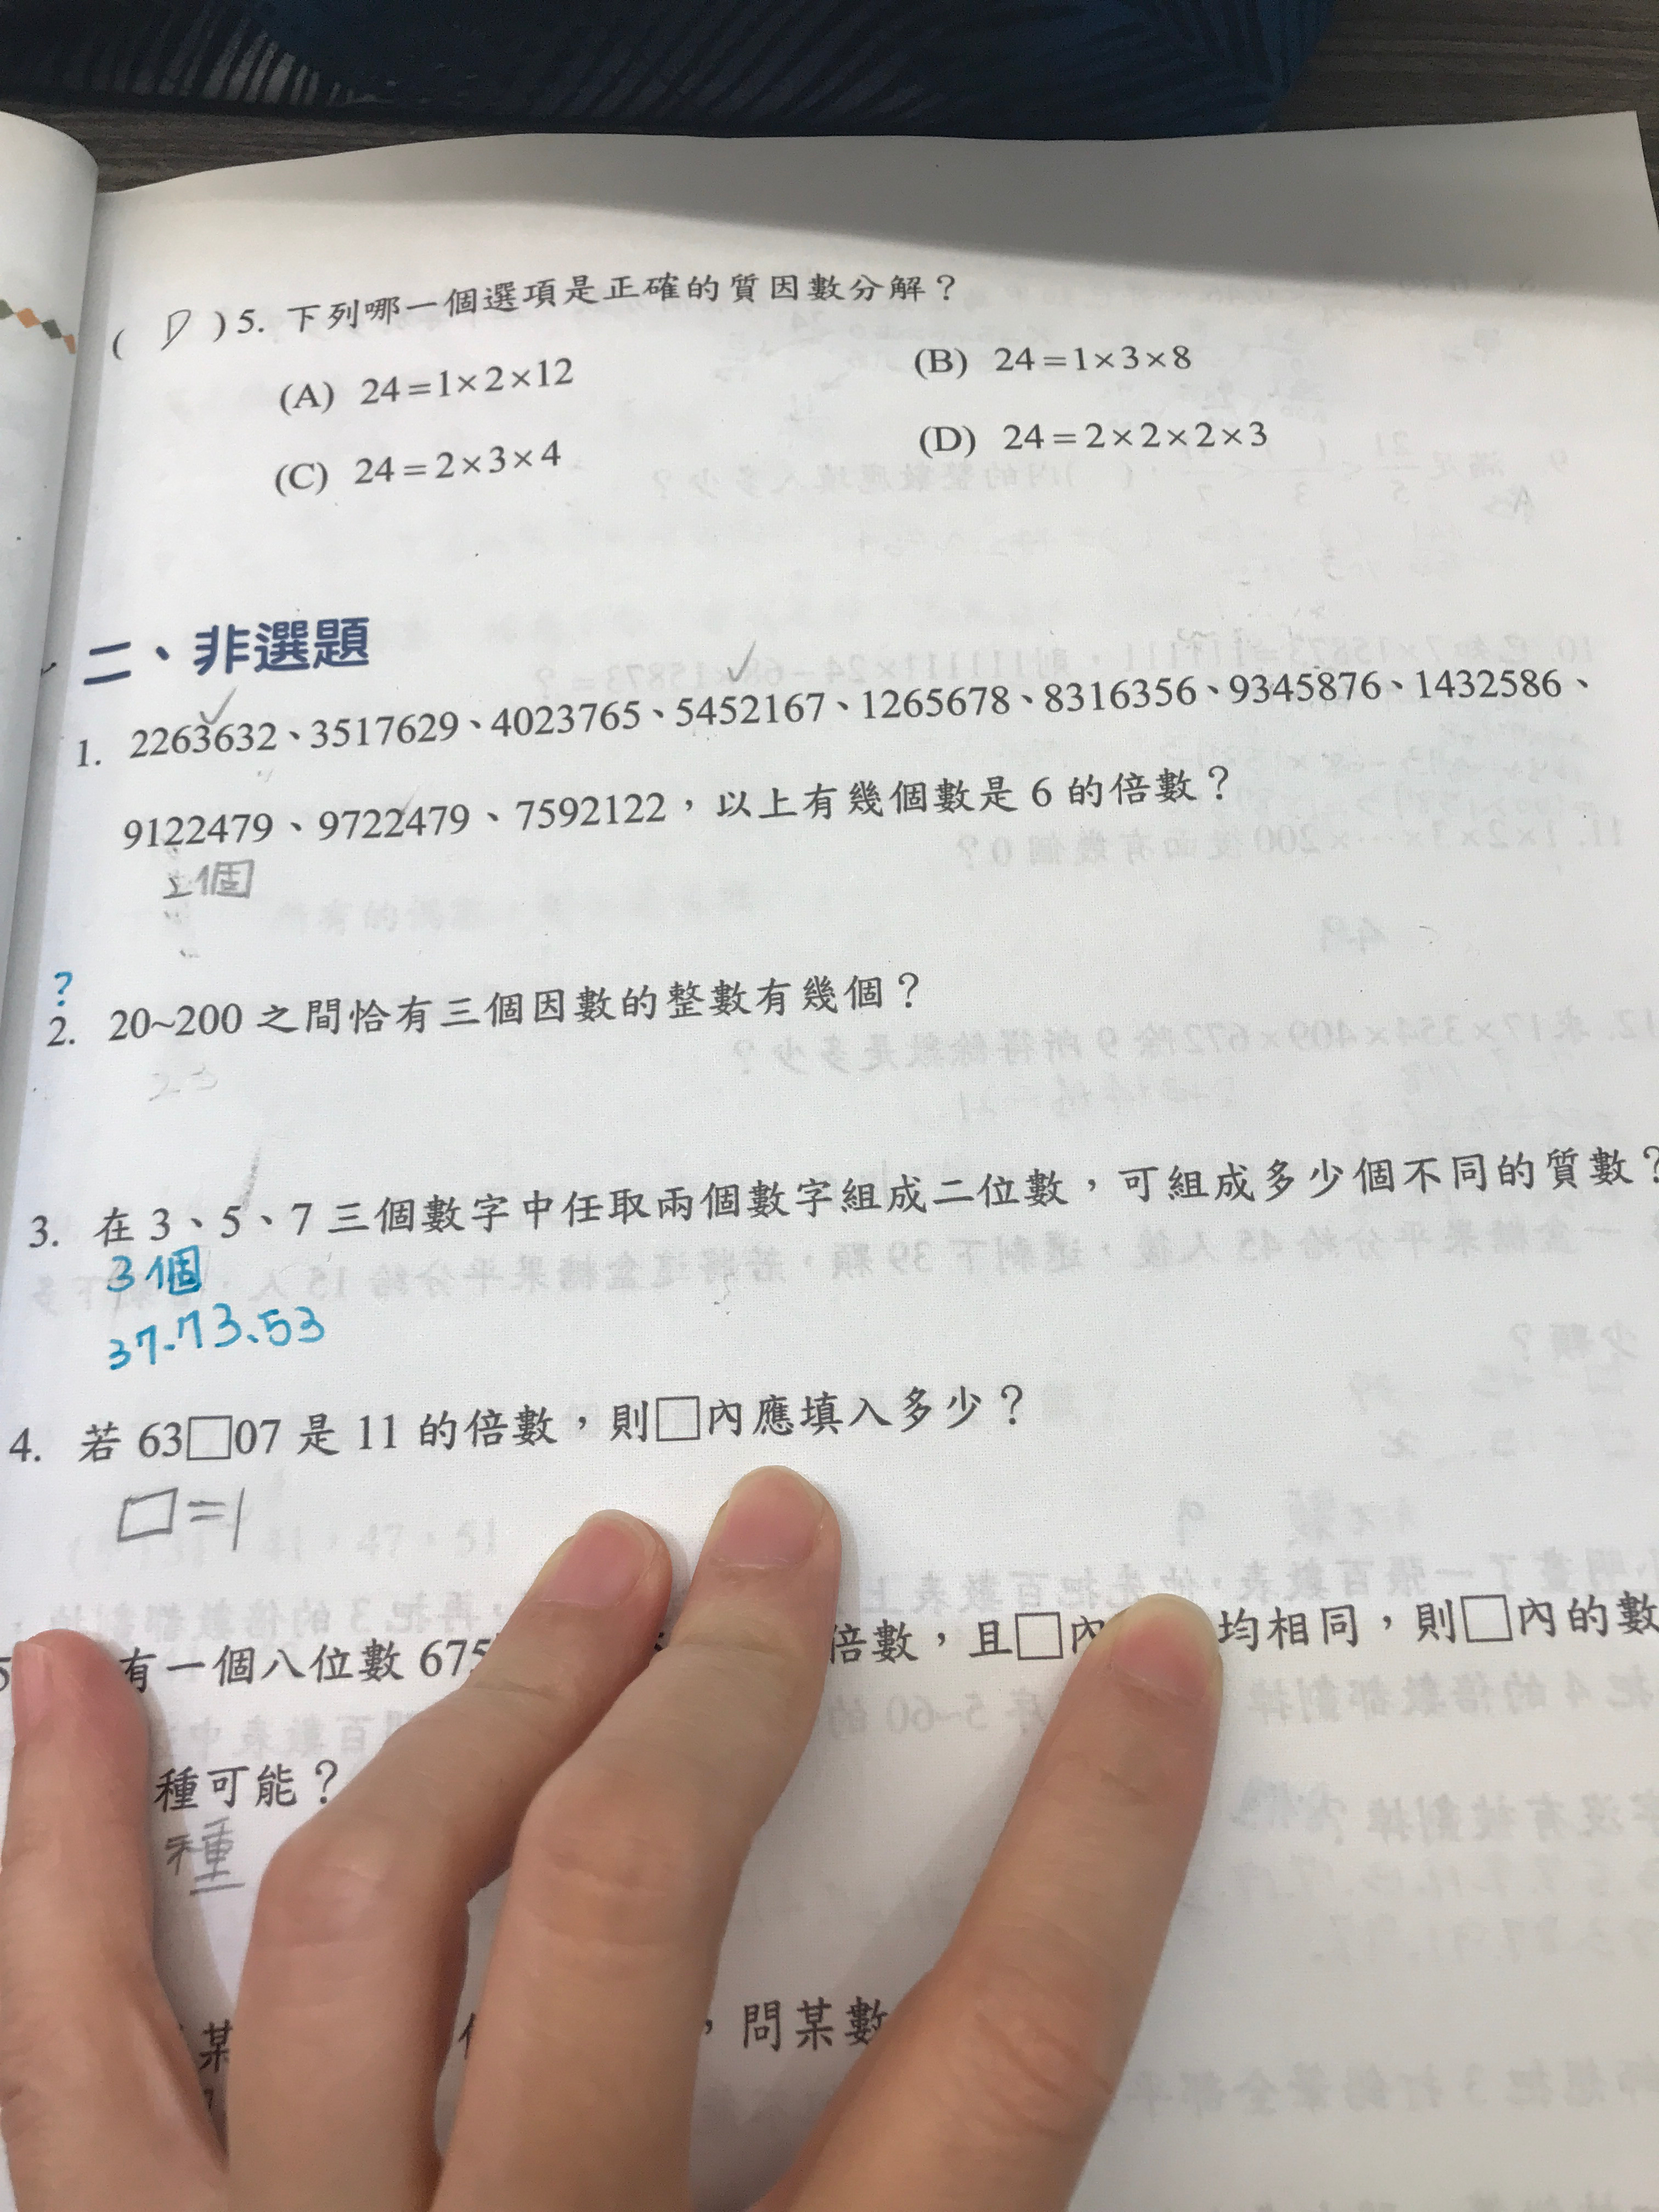 ( D ) 5. 下列哪一個選項是正確的質因數分解？
(A) 24=1×2×12
(B) 24=1×3×8
(C) 24=2×3×4
(D) 24=2×2×2×3
二、非選題
1. 2263632、3517629、4023765、5452167、1265678、8316356、9345876、1432586、
9122479、9722479、7592122，以上有幾個數是 6 的倍數？
個
?
2. 20~200 之間恰有三個因數的整數有幾個？
3. 在 3、5、7 三個數字中任取兩個數字組成二位數，可組成多少個不同的質數？
3個
37、73、53
4. 若 63□07 是 11 的倍數，則□內應填入多少？
□=1
有一個八位數 675 倍數，且□內 均相同，則□內的數
種可能？
種
某 ，問某數